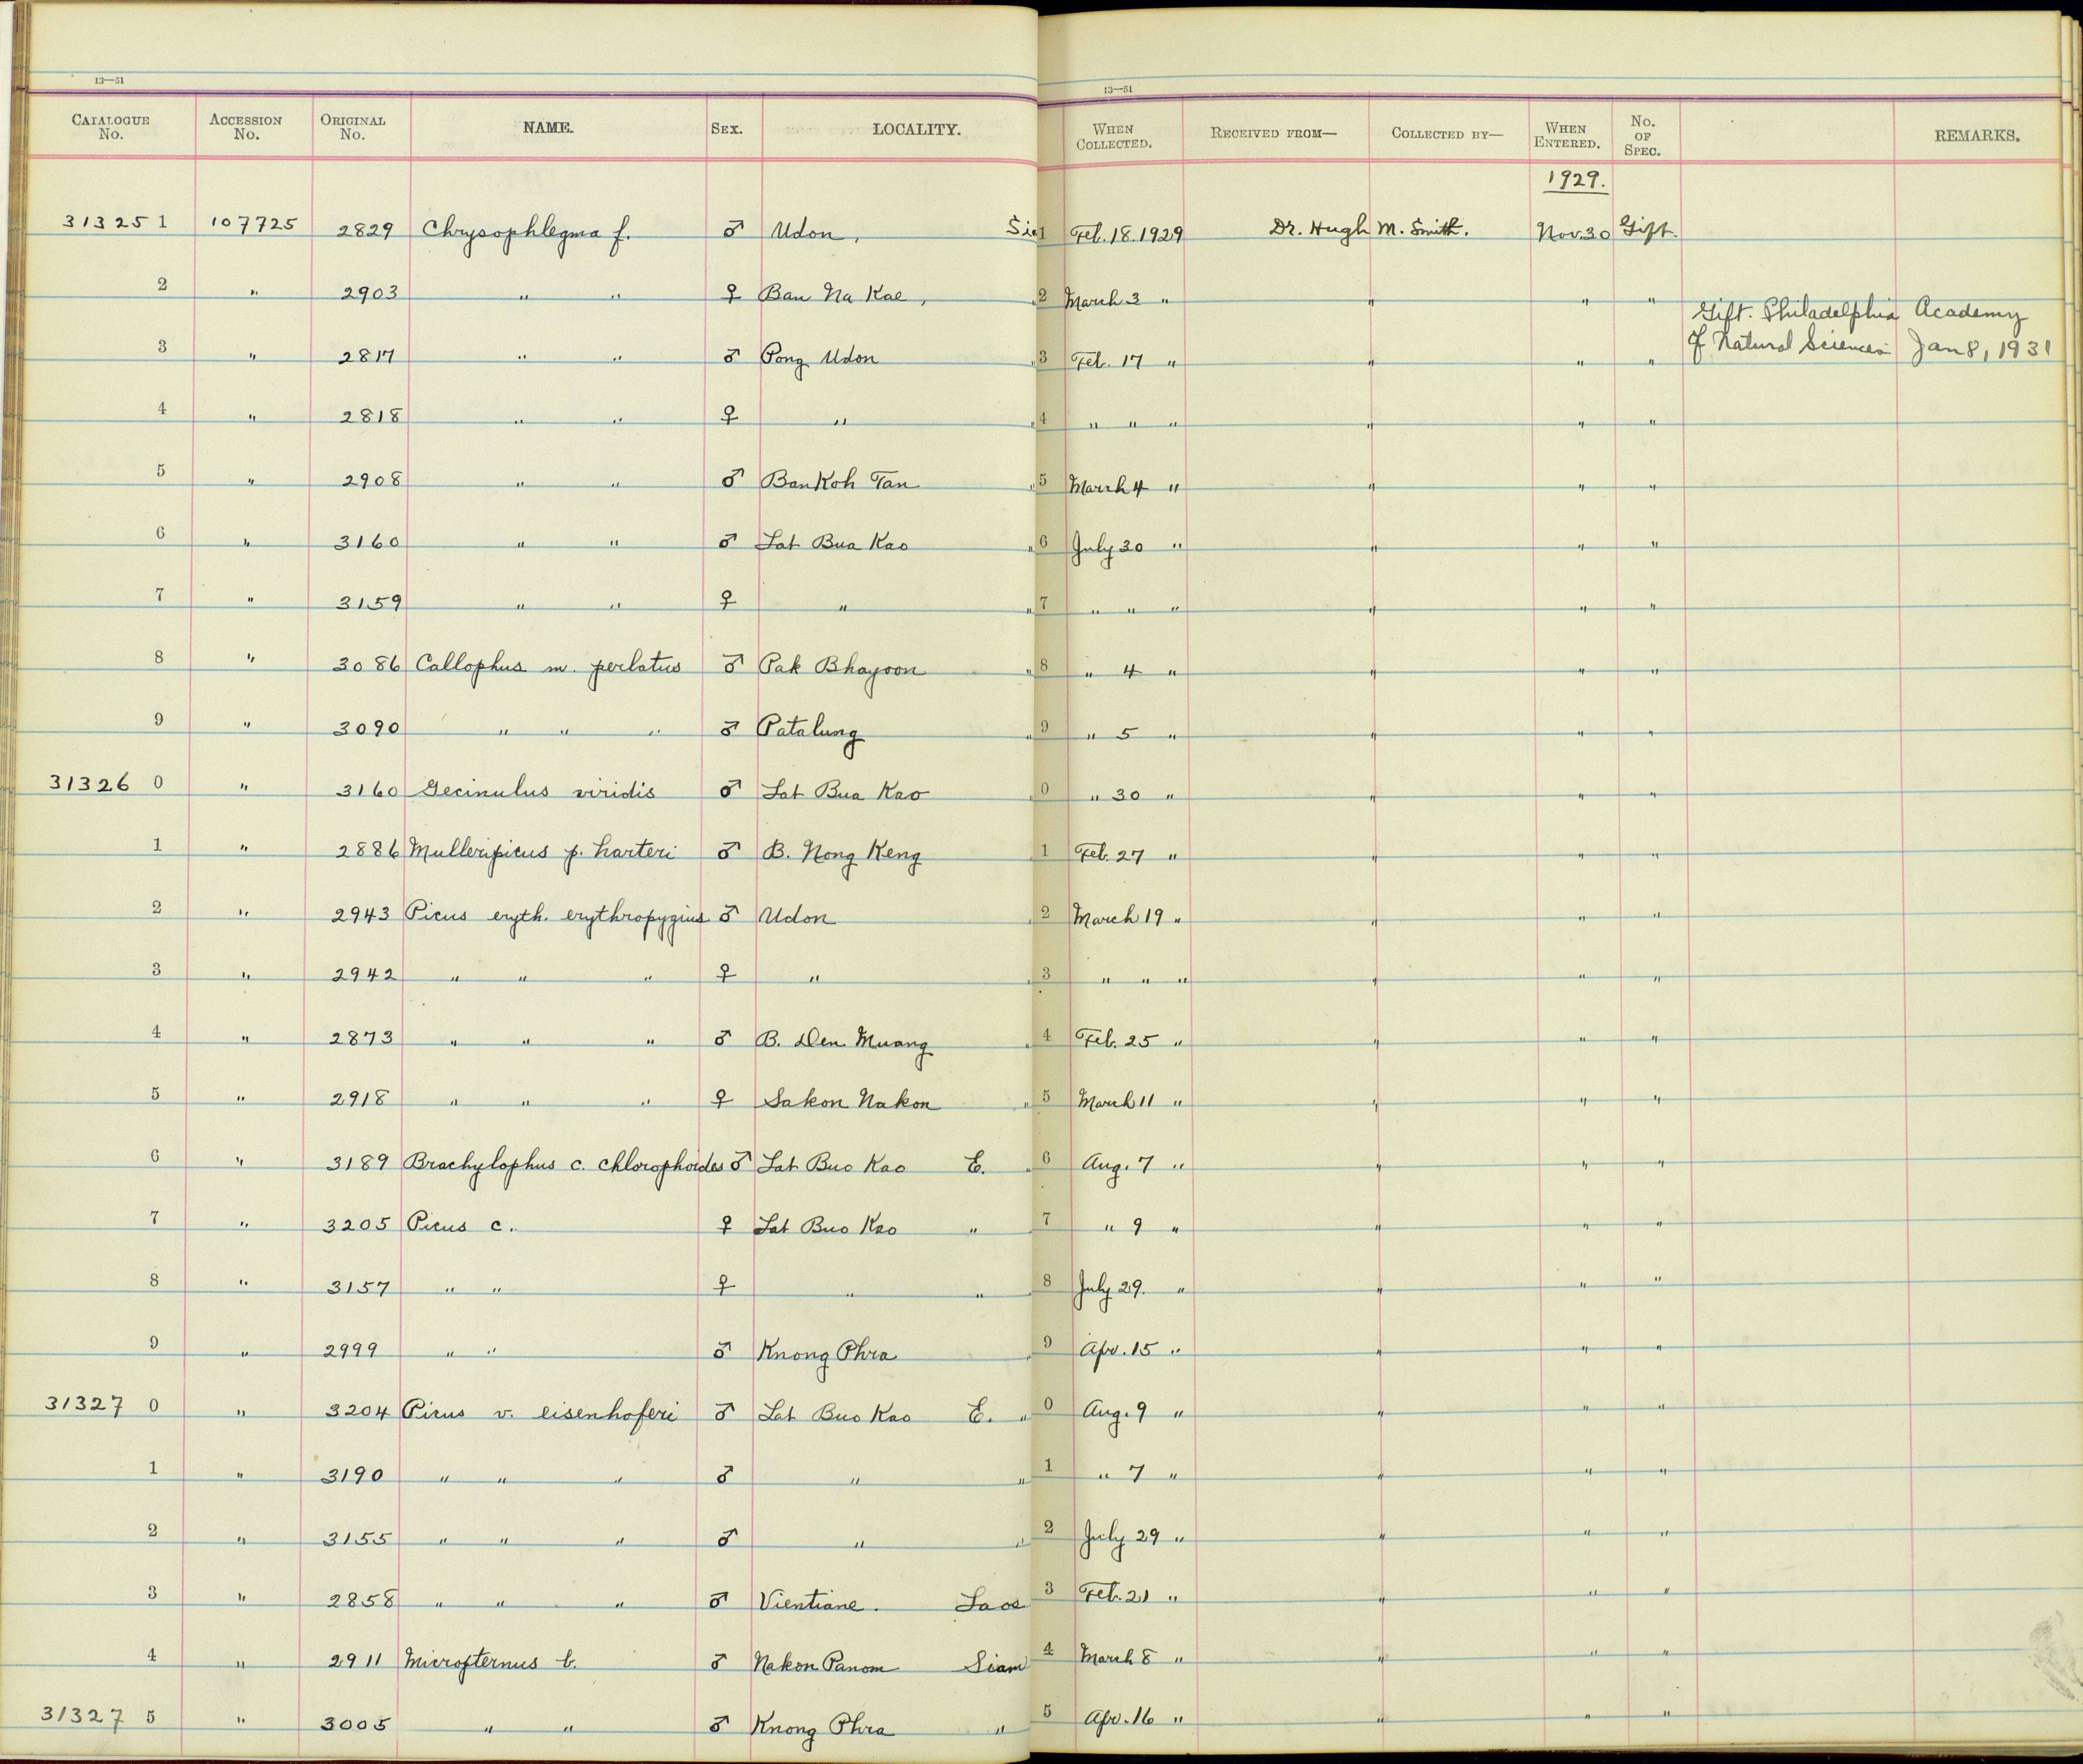 13—51 13—51
CATALOGUE No. ACCESSION No. ORIGINAL No. NAME. SEX. LOCALITY. WHEN COLLECTED. RECEIVED FROM— COLLECTED BY— WHEN ENTERED. No. OF SPEC. REMARKS.
1929.
313251 107725 2829 Chrysophlegma f. ♂ Udon, Si 1 Feb. 18. 1929 Dr. Hugh M. Smith. Nov. 30 Gift.
2 " 2903 " " ♀ Ban Na Kae, " 2 March 3 " " " "
Gift. Philadelphia Academy
3 " 2817 " " ♂ Pong Udon " 3 Feb. 17 " " " " of Natural Sciences Jan 8, 1931
4 " 2818 " " ♀ " " 4 " " " " " "
5 " 2908 " " ♂ Ban Koh Tan " 5 March 4 " " " "
6 " 3160 " " ♂ Lat Bua Kao " 6 July 30 " " " "
7 " 3159 " " ♀ " " 7 " " " " " "
8 " 3086 Callophus m. perlatus ♂ Pak Bhayoon " 8 " 4 " " " "
9 " 3090 " " " ♂ Patalung " 9 " 5 " " " "
31326 0 " 3160 Gecinulus viridis ♂ Lat Bua Kao " 0 " 30 " " " "
1 " 2886 Mulleripicus p. harteri ♂ B. Nong Keng 1 Feb. 27 " " " "
2 " 2943 Picus eryth. erythropygius ♂ Udon " 2 March 19 " " " "
3 " 2942 " " " ♀ " " 3 " " " " " "
4 " 2873 " " " ♂ B. Den Muang " 4 Feb. 25 " " " "
5 " 2918 " " " ♀ Sakon Nakon " 5 March 11 " " " "
6 " 3189 Brachylophus c. chlorophoides ♂ Lat Buo Kao E. " 6 Aug. 7 " " " "
7 " 3205 Picus c. ♀ Lat Buo Kao " 7 " 9 " " " "
8 " 3157 " " ♀ " " 8 July 29. " " " "
9 " 2999 " " ♂ Knong Phra " 9 Apr. 15 " " " "
31327 0 " 3204 Picus v. eisenhoferi ♂ Lat Buo Kao E. " 0 Aug. 9 " " " "
1 " 3190 " " " ♂ " " 1 " 7 " " " "
2 " 3155 " " " ♂ " " 2 July 29 " " " "
3 " 2858 " " " ♂ Vientiane. Laos 3 Feb. 21 " " " "
4 " 2911 Micropternus b. ♂ Nakon Panom Siam 4 March 8 " " " "
31327 5 " 3005 " " ♂ Knong Phra " 5 Apr. 16 " " " "